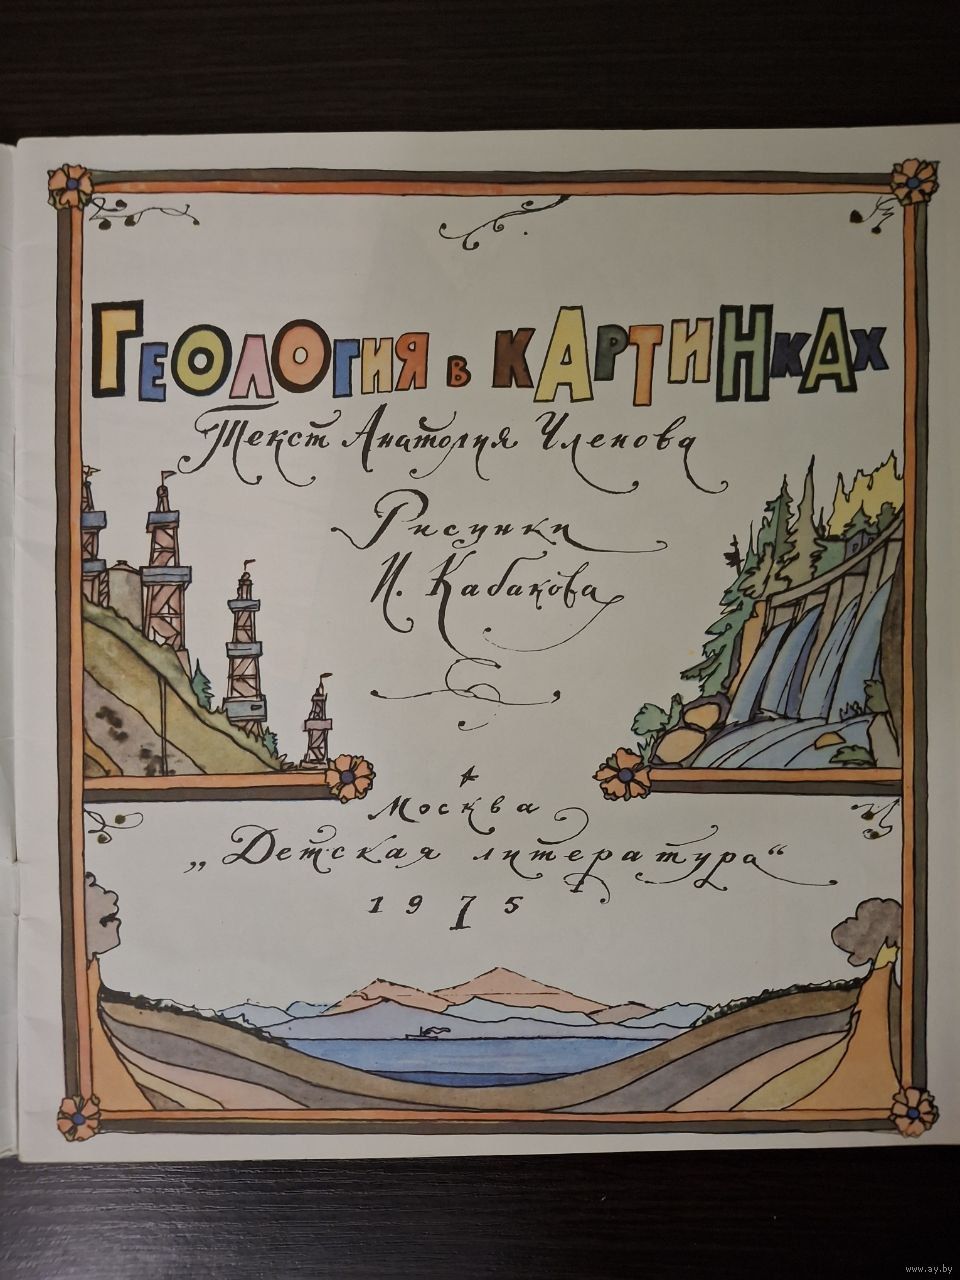 ГЕОЛОГИЯ В КАРТИНКАХ
Текст Анатолия Членова
Рисунки
И. Кабакова
Москва
„Детская литература“
1975
www.ay.by